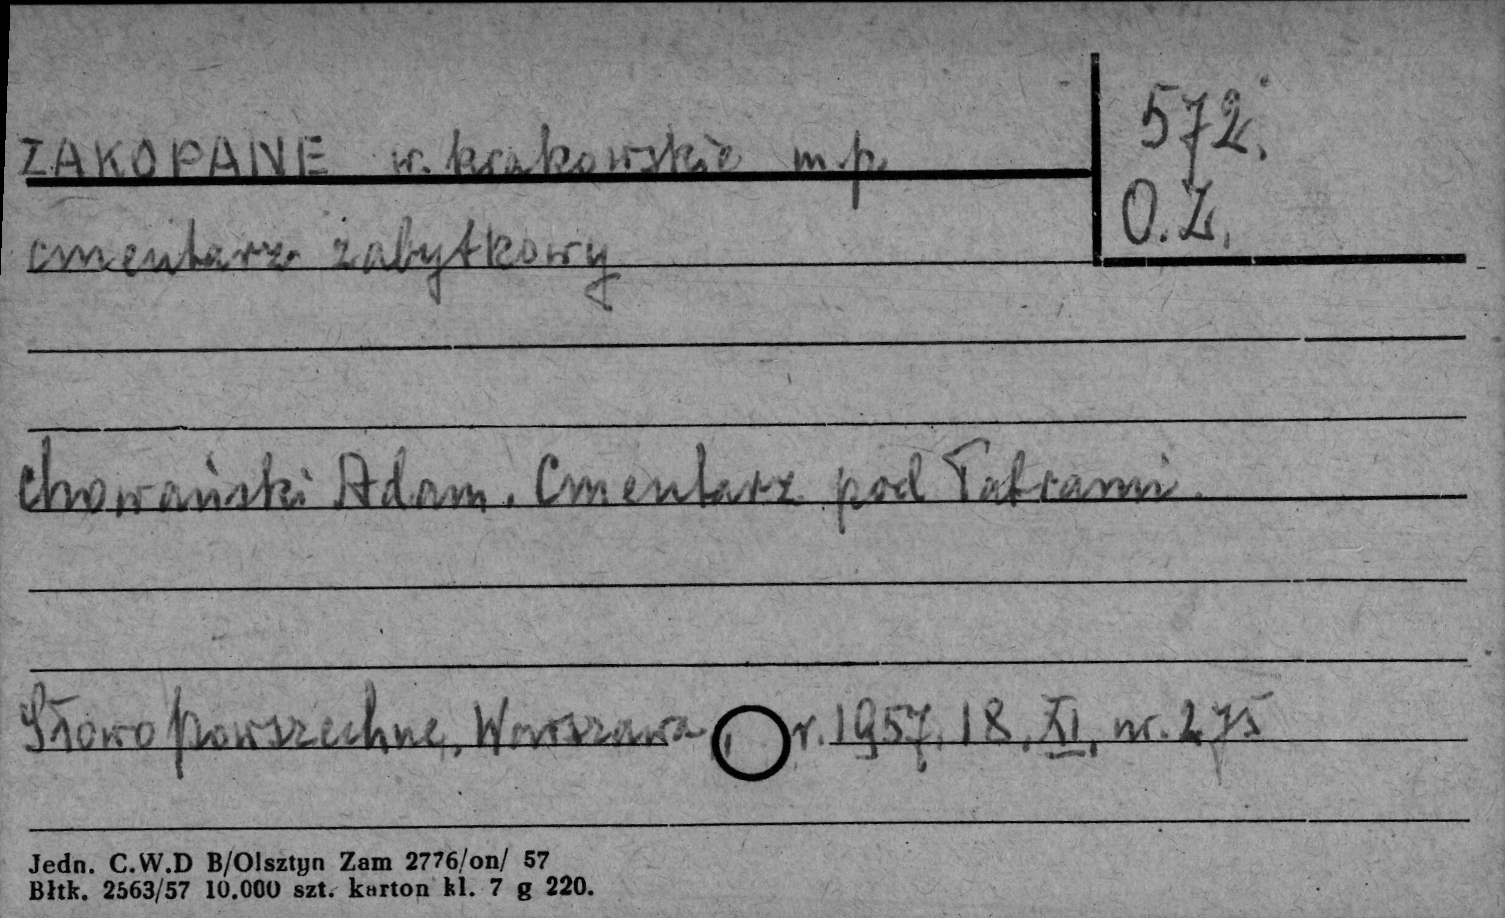 572.
ZAKOPANE w. krakowskie m. p.
O.Z.
cmentarz zabytkowy
Chowański Adam. Cmentarz pod Tatrami.
Słowo Powszechne, Warszawa, r. 1957. 18. XI, nr. 275
Jedn. C.W.D B/Olsztyn Zam 2776/on/ 57
Błtk. 2563/57 10.000 szt. karton kl. 7 g 220.